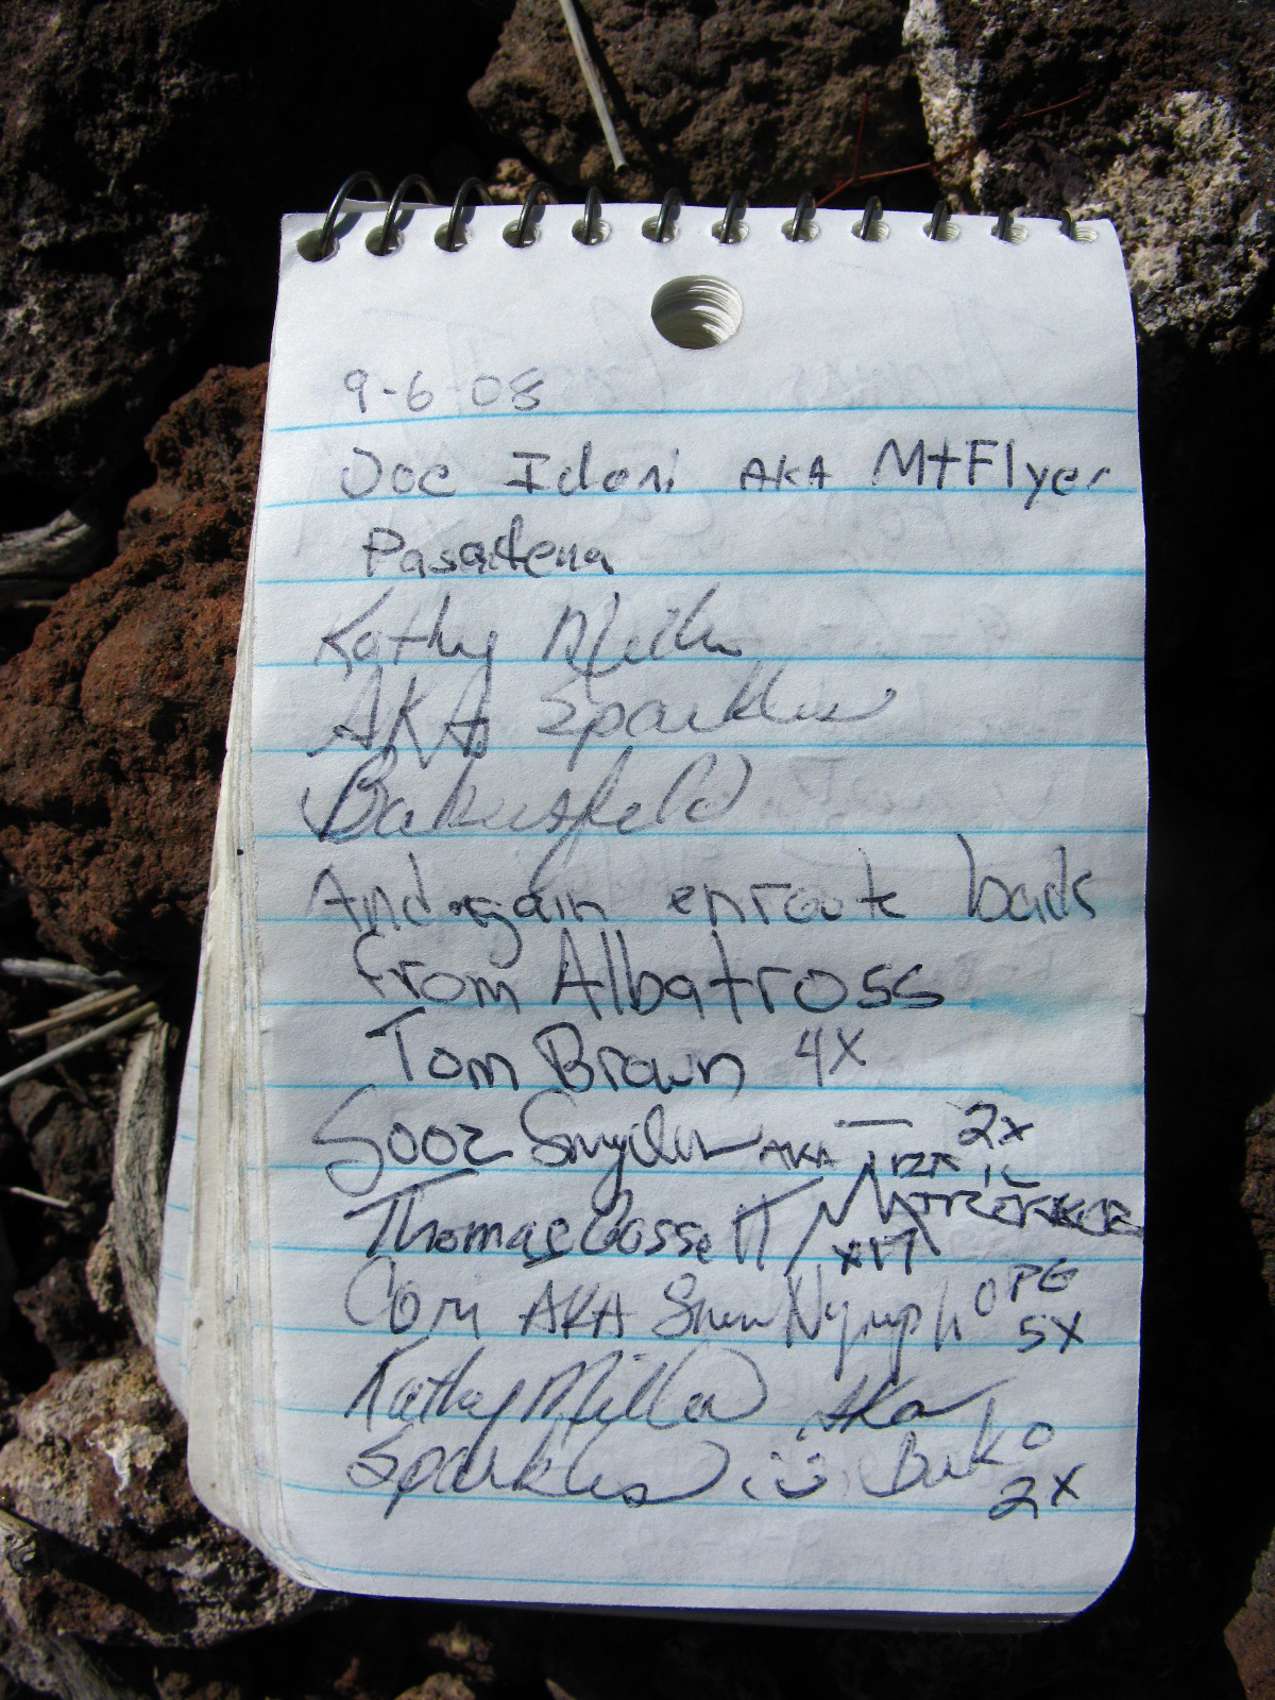 9-6-08
Joe Idoni AKA MtFlyer
Pasadena
Kathy Miller
AKA Sparkles
Bakersfield
And again enroute back
from Albatross
Tom Brown 4X
Sooz Snyder AKA 2X
Thomas Gossett
X17
Cori AKA Nympho PG
5X
Kathy Miller Aka
Sparkles Bako
2X